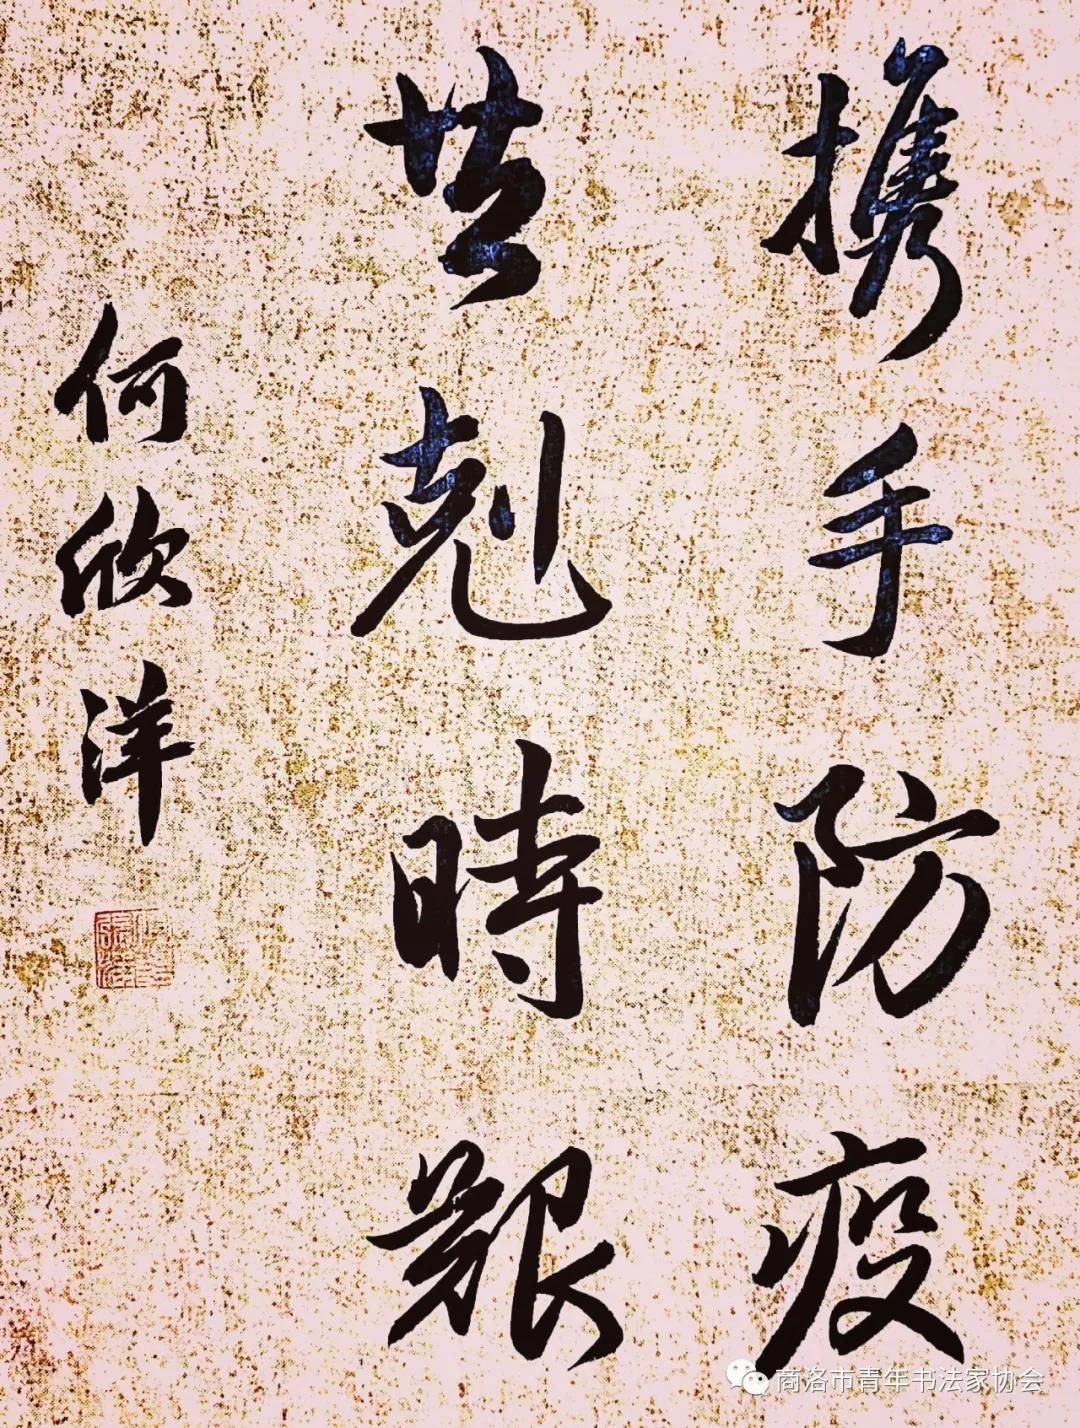 携手防疫
共剋時艱
何欣洋
商洛市青年书法家协会